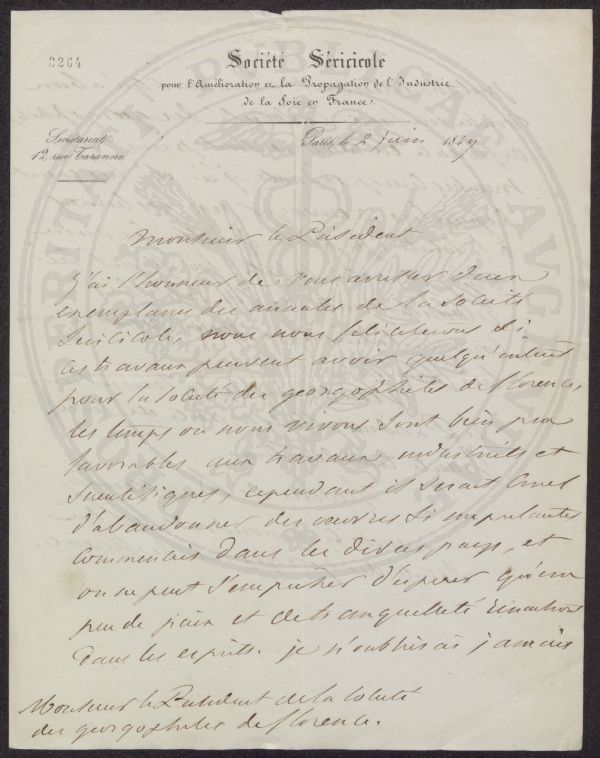 2264
Société Séricicole
pour l'Amélioration et la Propagation de l'Industrie
de la Soie en France.
Secrétariat
12, rue Taranne
Paris, le 2 juin 1849
Monsieur le Président
J'ai l'honneur de vous adresser deux
exemplaires des annales de la Société
Séricicole, nous nous féliciterons si
ces travaux peuvent avoir quelqu'intérêt
pour la société des georgophiles de florence,
les temps où nous vivons sont bien peu
favorables aux travaux industriels et
scientifiques, cependant il serait cruel
d'abandonner des œuvres si importantes
commencées dans les divers pays, et
on ne peut s'empêcher d'espérer qu'un
peu de paix et de tranquillité
dans les esprits. je n'oublierai jamais
Monsieur le Président de la société
des georgophiles de florence.
PROSPERITATI PUBLICAE AUGENDAE